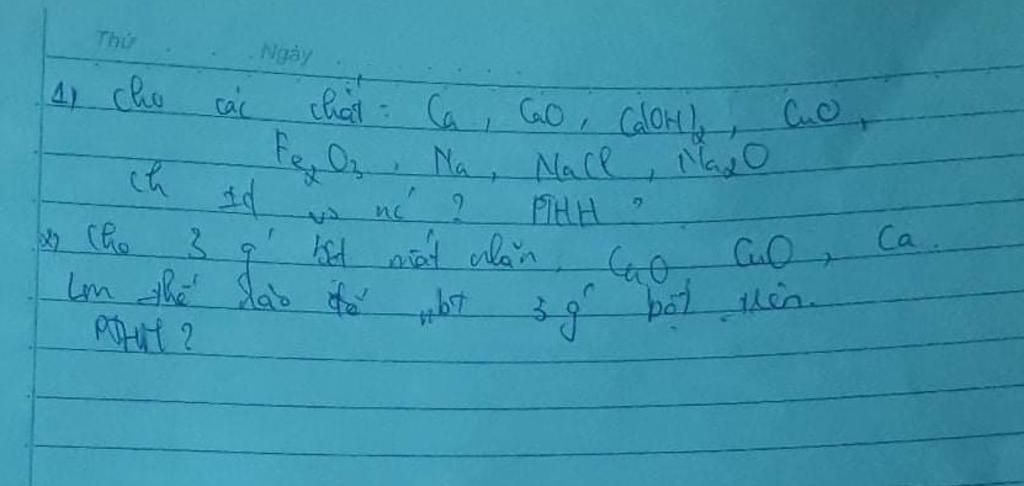 Thứ . . . Ngày . . . . . .
1) Cho các chất: Ca, CaO, Ca(OH)2, CuO,
Fe2O3, Na, NaCl, Na2O
ch td vs nc ? PTHH ?
2) Cho 3 gí bột mất nhãn CaO, CuO, Ca.
Lm thế nào để nbt 3 gí bột trên.
PTHH ?